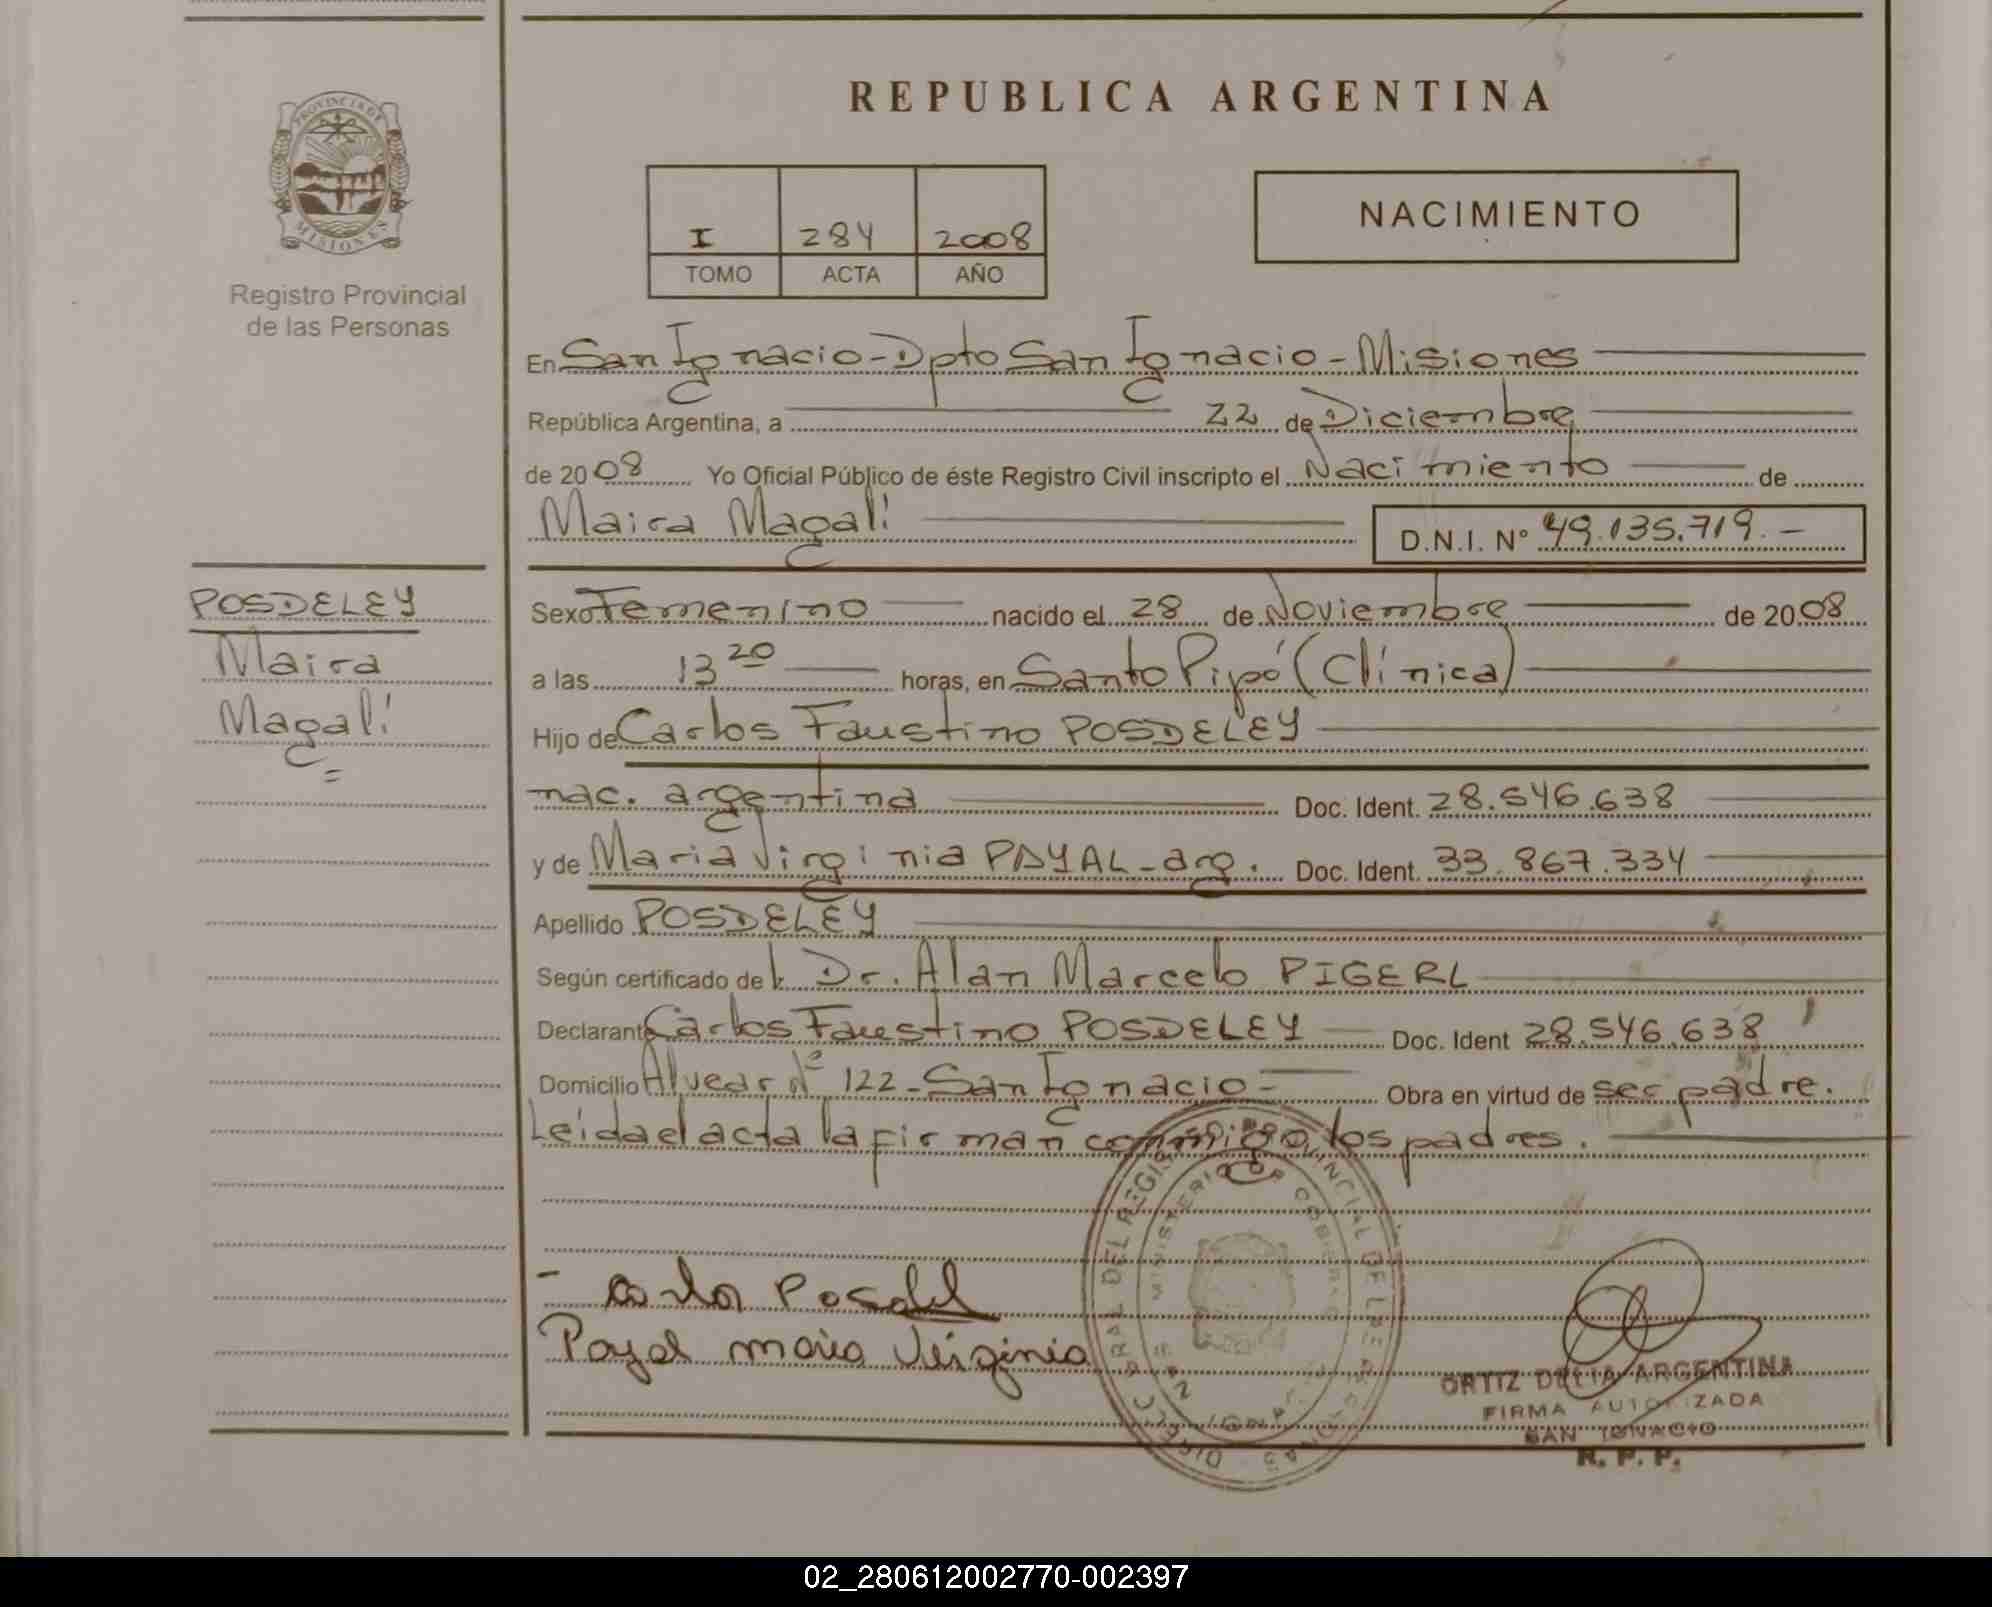 REPUBLICA ARGENTINA
PROVINCIA DE
MISIONES
Registro Provincial
de las Personas
I 284 2008
TOMO ACTA AÑO
NACIMIENTO
En San Ignacio - Dpto San Ignacio - Misiones
República Argentina, a 22 de Diciembre
de 2008 Yo Oficial Público de éste Registro Civil inscripto el Nacimiento de
Maira Magalí D.N.I. Nº 49.135.719.-
POSDELEY
Maira
Magalí
Sexo Femenino nacido el 28 de Noviembre de 2008
a las 13 20 horas, en Santo Pipó (Clínica)
Hijo de Carlos Faustino POSDELEY
nac. argentina Doc. Ident. 28.546.638
y de Maria Virginia PAYAL - arg. Doc. Ident. 33.867.334
Apellido POSDELEY
Según certificado del Dr. Alan Marcelo PIGERL
Declarante Carlos Faustino POSDELEY Doc. Ident 28.546.638
Domicilio Alvear Nº 122 - San Ignacio - Obra en virtud de ser padre.
Leída el acta la firman conmigo los padres.
Payal maria Virginia
ORTIZ DELIA ARGENTINA
FIRMA AUTORIZADA
SAN IGNACIO
R. P. P.
02_280612002770-002397